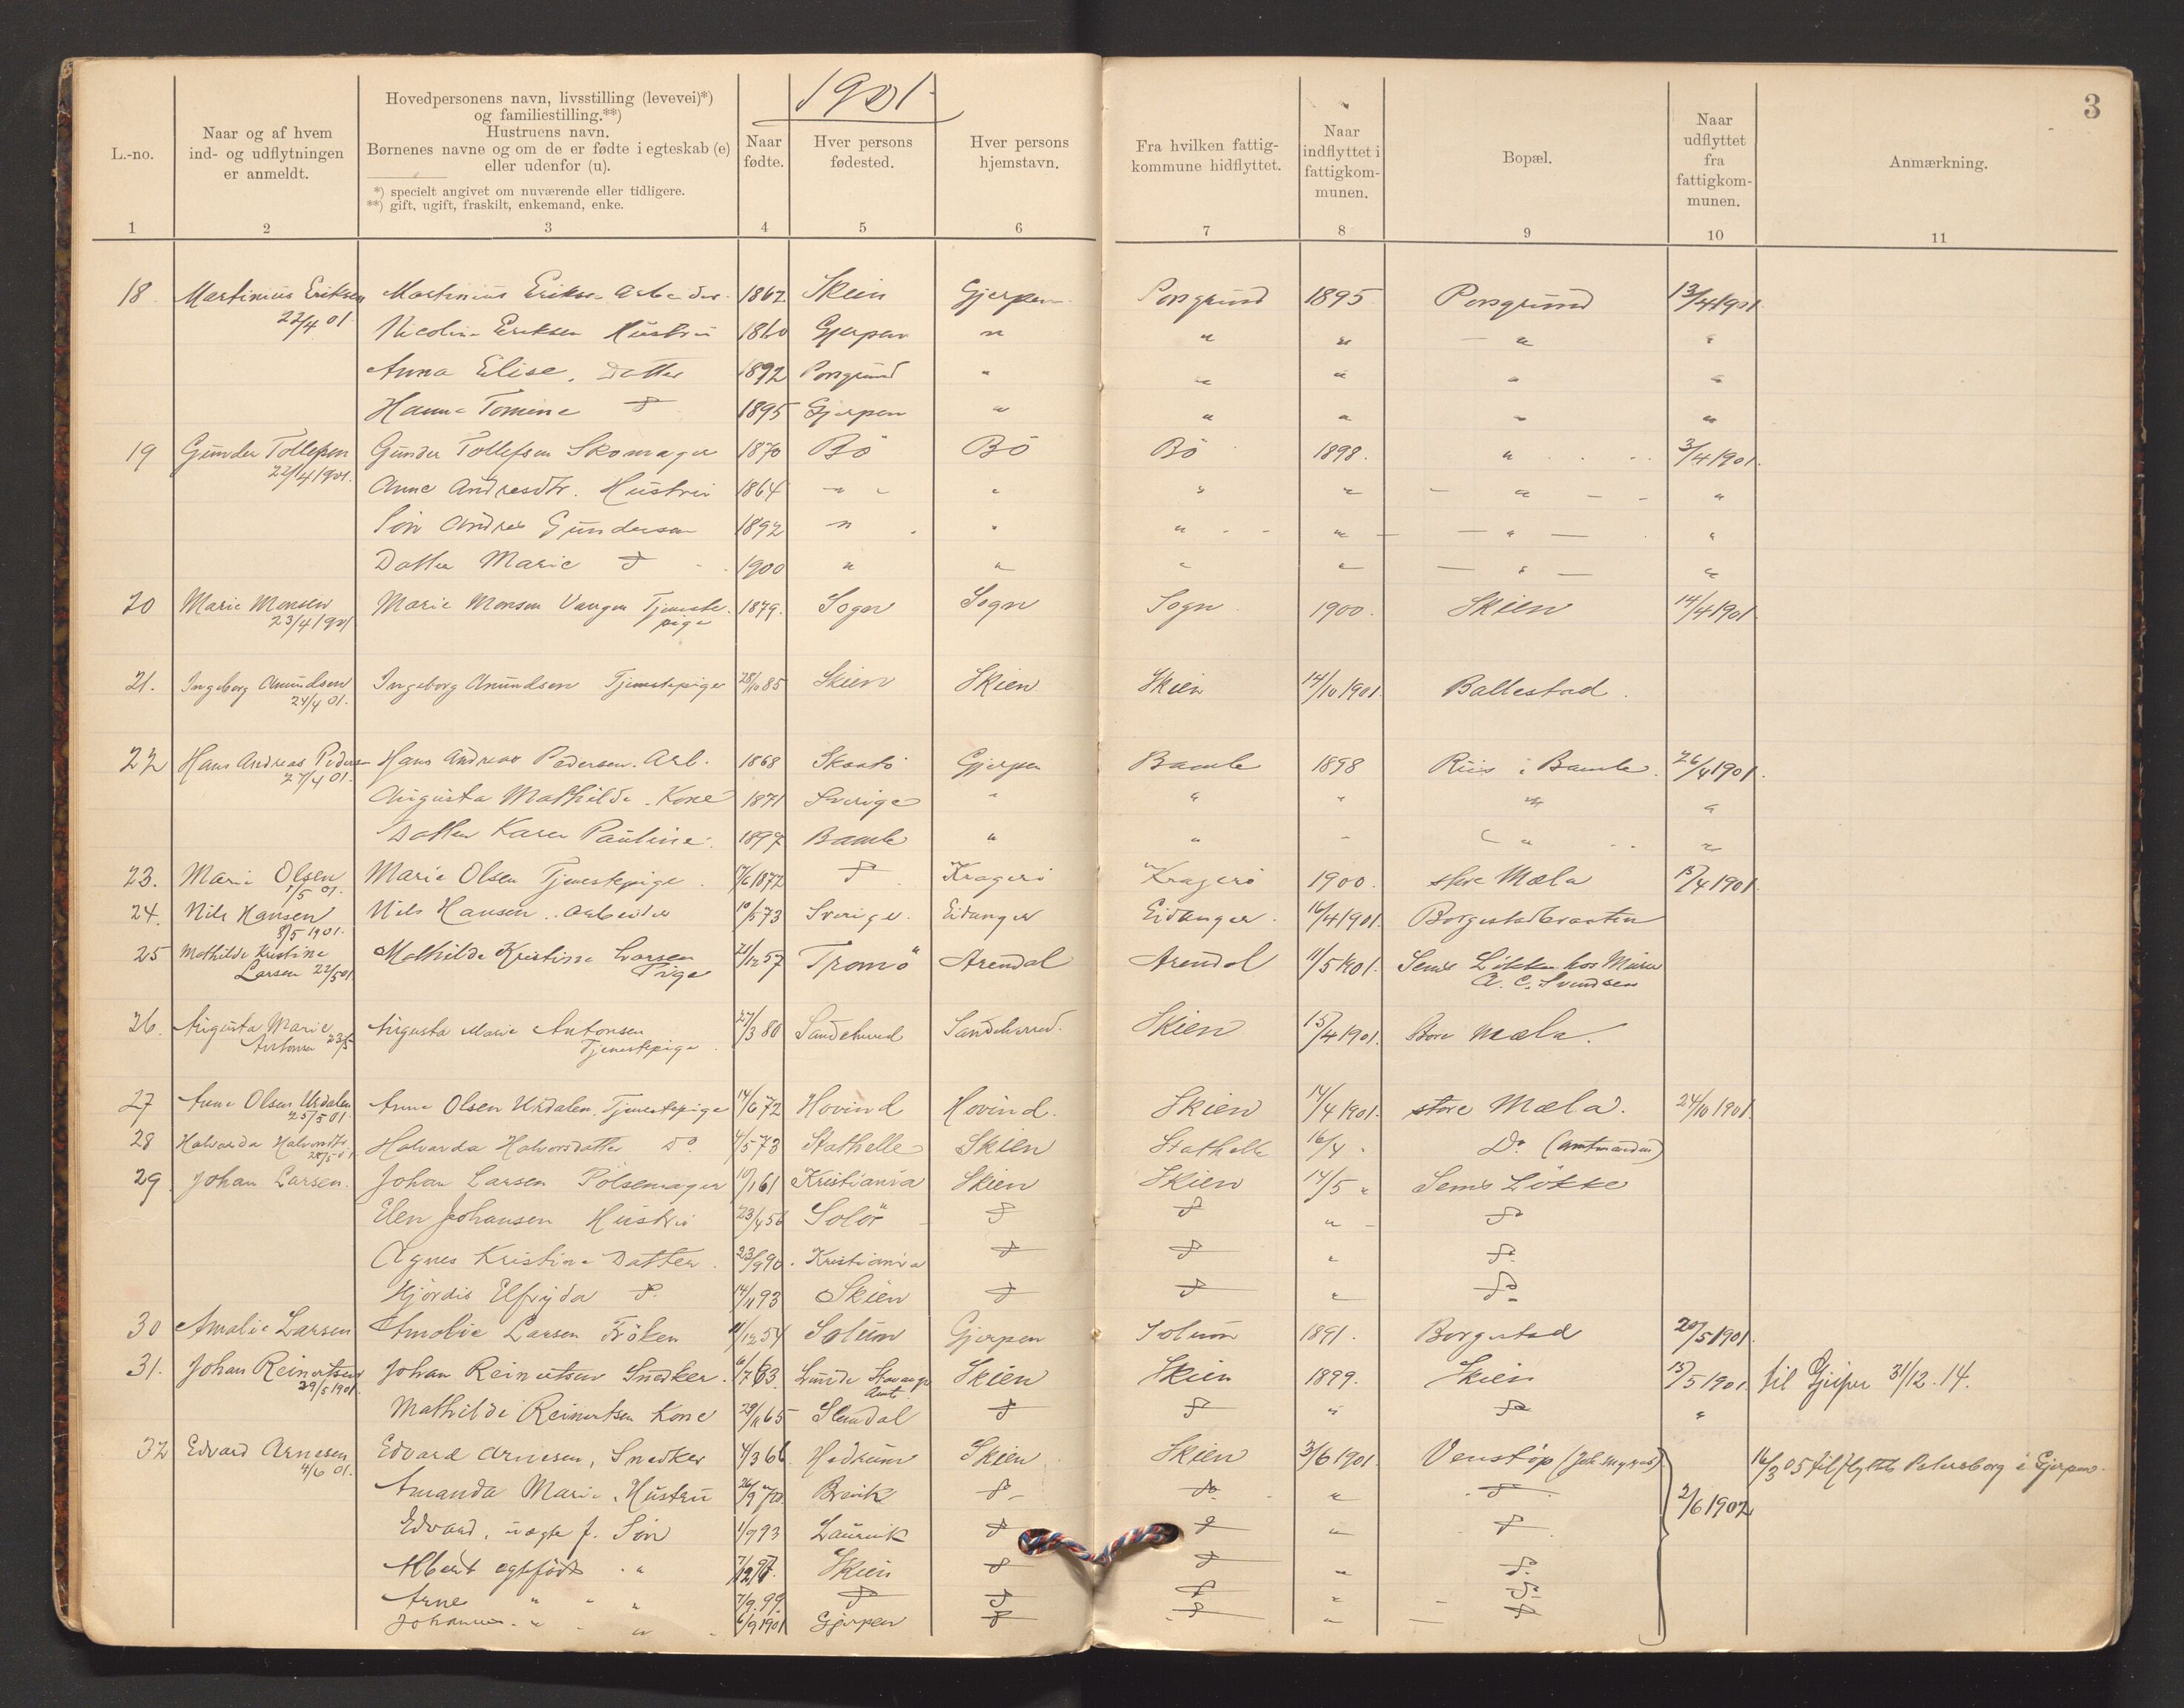 1901.
3
L.-no.
Naar og af hvem
ind- og udflytningen
er anmeldt.
Hovedpersonens navn, livsstilling (levevei)*)
og familiestilling.**)
Hustruens navn.
Børnenes navne og om de er fødte i egteskab (e)
eller udenfor (u).
*) specielt angivet om nuværende eller tidligere.
**) gift, ugift, fraskilt, enkemand, enke.
Naar
fødte.
Hver persons
fødested.
Hver persons
hjemstavn.
Fra hvilken fattig-
kommune hidflyttet.
Naar
indflyttet i
fattigkom-
munen.
Bopæl.
Naar
udflyttet
fra
fattigkom-
munen.
Anmærkning.
1 2 3 4 5 6 7 8 9 10 11
18 Martinius Eriksen Martinius Eriksen Arbeider 1862 Skien Gjerpen Porsgrund 1895 Porsgrund 13/4 1901
22/4 01. Nicoline Eriksen Hustru 1860 Gjerpen " " " " "
Anna Elise, Datter 1892 Porsgrund " " " " "
Hanna Tomine do 1895 Gjerpen " " " " "
19 Gunder Tollefsen Gunder Tollefsen Skomager 1870 Bö Bö Bö 1898. " 3/4 1901.
22/4 1901. Anne Andresdtr. Hustru 1864 " " " " " "
Sön Andres Gundersen 1892 " " " " " "
Datter Marie do 1900 " " " " " "
20 Marie Monsen Marie Monsen Vangen Tjeneste- 1879. Sogn Sogn Sogn 1900. Skien 14/4 1901
23/4 1901 pige
21. Ingeborg Amundsen Ingeborg Amundsen Tjenestepige 28/10 85 Skien Skien Skien 14/10 1901. Ballestad.
24/4 01.
22 Hans Andreas Pedersen Hans Andreas Pedersen. Arb. 1868 Skaatö Gjerpen Bamle 1898 Riis i Bamle. 26/4 1901.
27/4 01. Augusta Mathilde. Kone 1871 Sverige " " " " "
Datter Karen Pauline. 1897 Bamle " " " " "
23. Marie Olsen Marie Olsen Tjenestepige 1872 do Kragerö Kragerö 1900. store Mæla 15/4 1901
1/5 01.
24. Nils Hansen Nils Hansen. Arbeider 10/5 73 Sverige. Eidanger Eidanger. 16/4 1901. Borgestadbraaten
8/5 1901.
25 Mathilde Kristine Mathilde Kristine Larsen 21/12 57 Tromö Arendal Arendal 11/5 1901. Sems Løkken hos Murer
Larsen 22/5 01 Pige A. C. Svendsen
26. Augusta Marie Augusta Marie Antonsen 27/3 80 Sandeherred Sandeherred. Skien 15/4 1901. Store Mæla.
Antonsen 23/5 Tjenestepige
27 Anne Olsen Urdalen Anne Olsen Urdalen. Tjenestepige 14/6 72 Hovind Hovind. Skien 14/4 1901. store Mæla. 24/10 1901.
25/5 01.
28 Halvarda Halvorsdtr. Halvarda Halvorsdatter Do. 4/5 73 Stathelle Skien Stathelle 16/4 " Do (Amtmanden)
29 Johan Larsen. Johan Larsen Pölsemager 10/1 61 Kristiania Skien Skien 14/5 " Sems Løkke
Elen Johansen Hustru 23/4 56 Solör do do " do
Agnes Kristine Datter. 23/9 90. Kristiania do do " do
Hjördis Elfrida do. 14/11 93 Skien do do " do
30 Amalie Larsen Amalie Larsen Fröken 11/12 54 Solum Gjerpen Solum 1891. Borgestad 20/5 1901.
31. Johan Reinertsen Johan Reinertsen Snedker. 6/7 63 Lunde Stavanger Skien Skien 1899. Skien 15/5 1901. til Gjerpen 31/12. 14.
29/5 1901. Amt
Mathilde Reinertsen Kone 29/11 65 Slemdal do do " do "
32 Edvard Arnesen Edvard Arnesen, Snedker 4/3 66 Hedrum Skien Skien 3/6 1901. Venstøp 16/3 05 tilflyttet Petersborg i Gjerpen.
4/6 01. Amanda Marie. Hustru 26/9 70. Brevik do do " do 2/6 1902
Edvard, uægte f. Sön 1/9 93 Laurvik do do " do
Albert egtefödt " 7/12 97. Skien do do " do
Arne " " 7/9. 99. do do do " do
Johannes " " 6/9 1901 Gjerpen do do " do